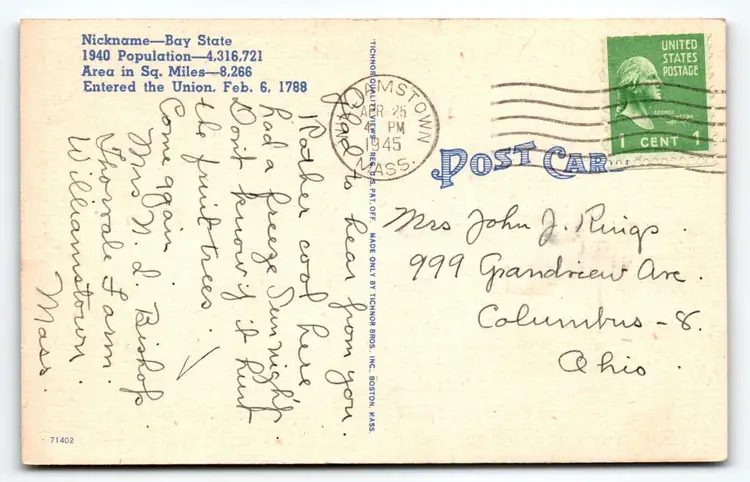 Nickname—Bay State
1940 Population—4,316,721
Area in Sq. Miles—8,266
Entered the Union, Feb. 6, 1788
Glad to hear from you.
Rather cool here
had a freeze Sun night
Don't know if it hurt
the fruit trees.
Come again.
Mrs N. D. Bishop.
Thorvale Farm.
Williamstown.
Mass.
71402
TICHNOR QUALITY VIEWS, REG. U.S. PAT. OFF. MADE ONLY BY TICHNOR BROS. INC., BOSTON, MASS.
AMSTOWN
APR 25
4 PM
1945
MASS.
UNITED
STATES
POSTAGE
GEORGE
1 CENT 1
POST CAR
Mrs John J. Rings.
999 Grandview Ave.
Columbus-8.
Ohio.